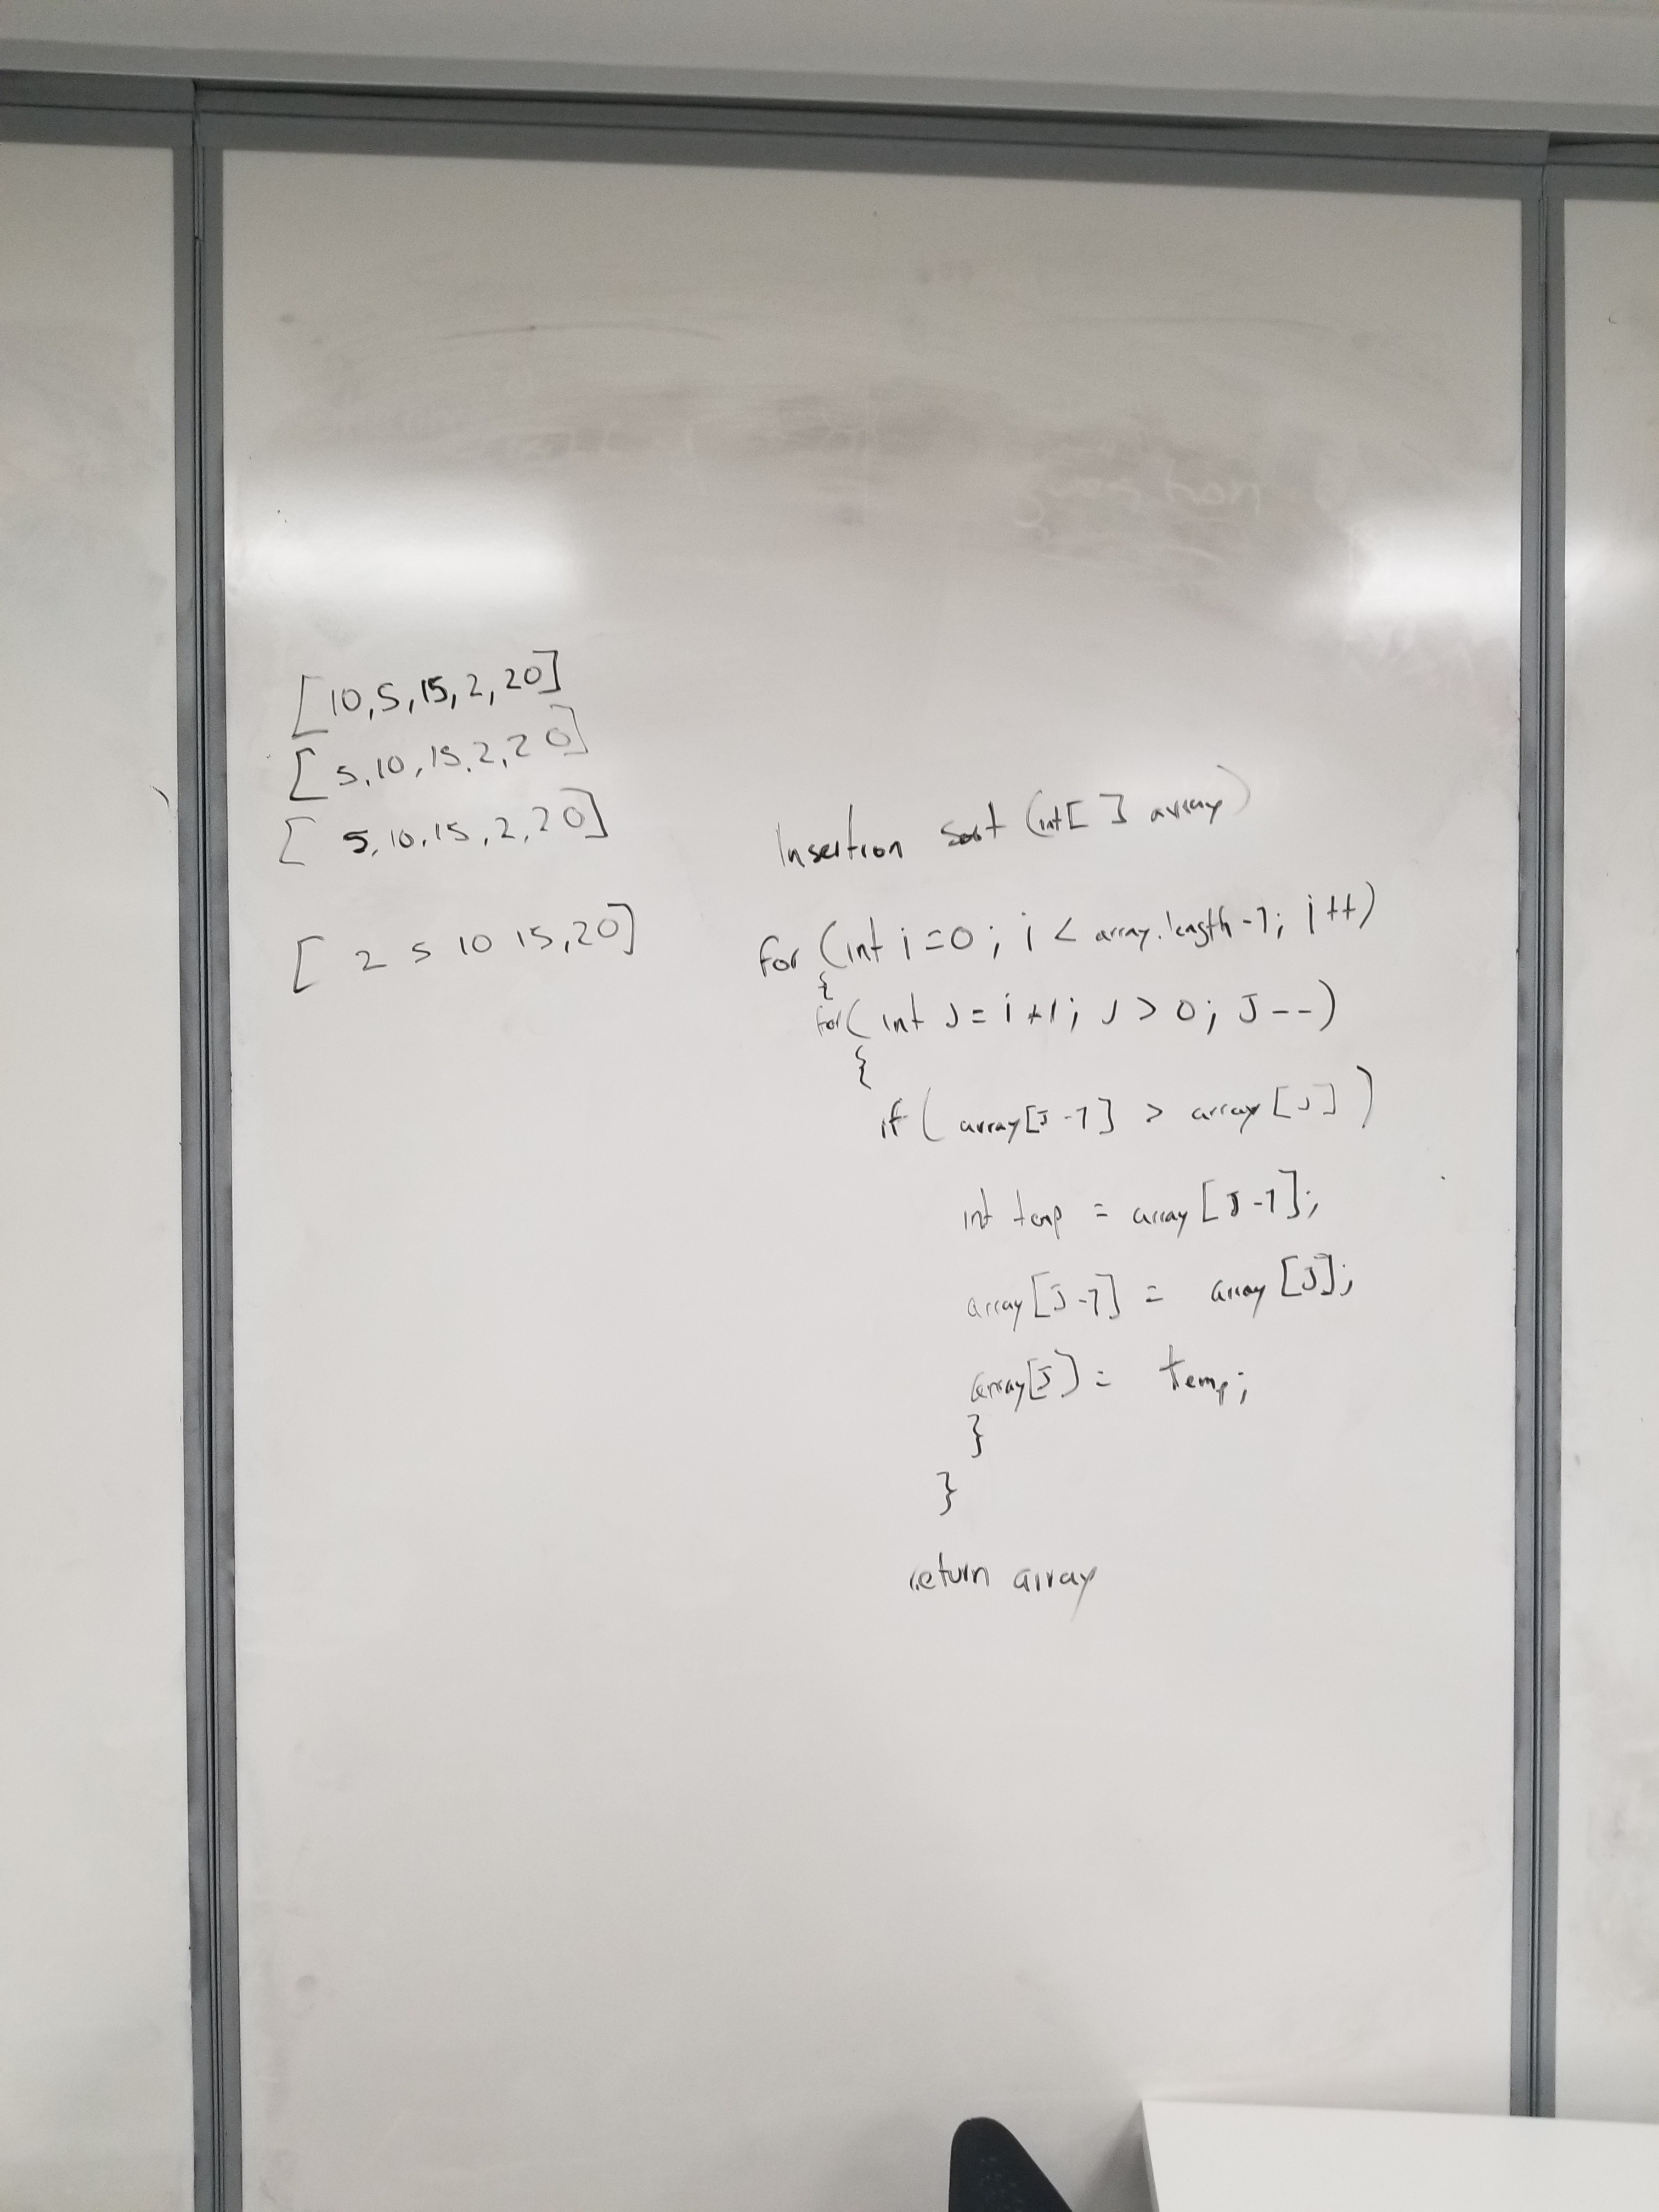 [10,5,15,2,20]
[5,10,15,2,20]
[5,10,15,2,20]
[2 5 10 15,20]
Insertion sort (int[] array)
for (int i=0; i < array.length-1; i++)
{
for( int J = i+1; J > 0; J--)
{
if ( array[J-1] > array[J] )
int temp = array[J-1];
array[J-1] = array[J];
array[J) = temp;
}
}
return array